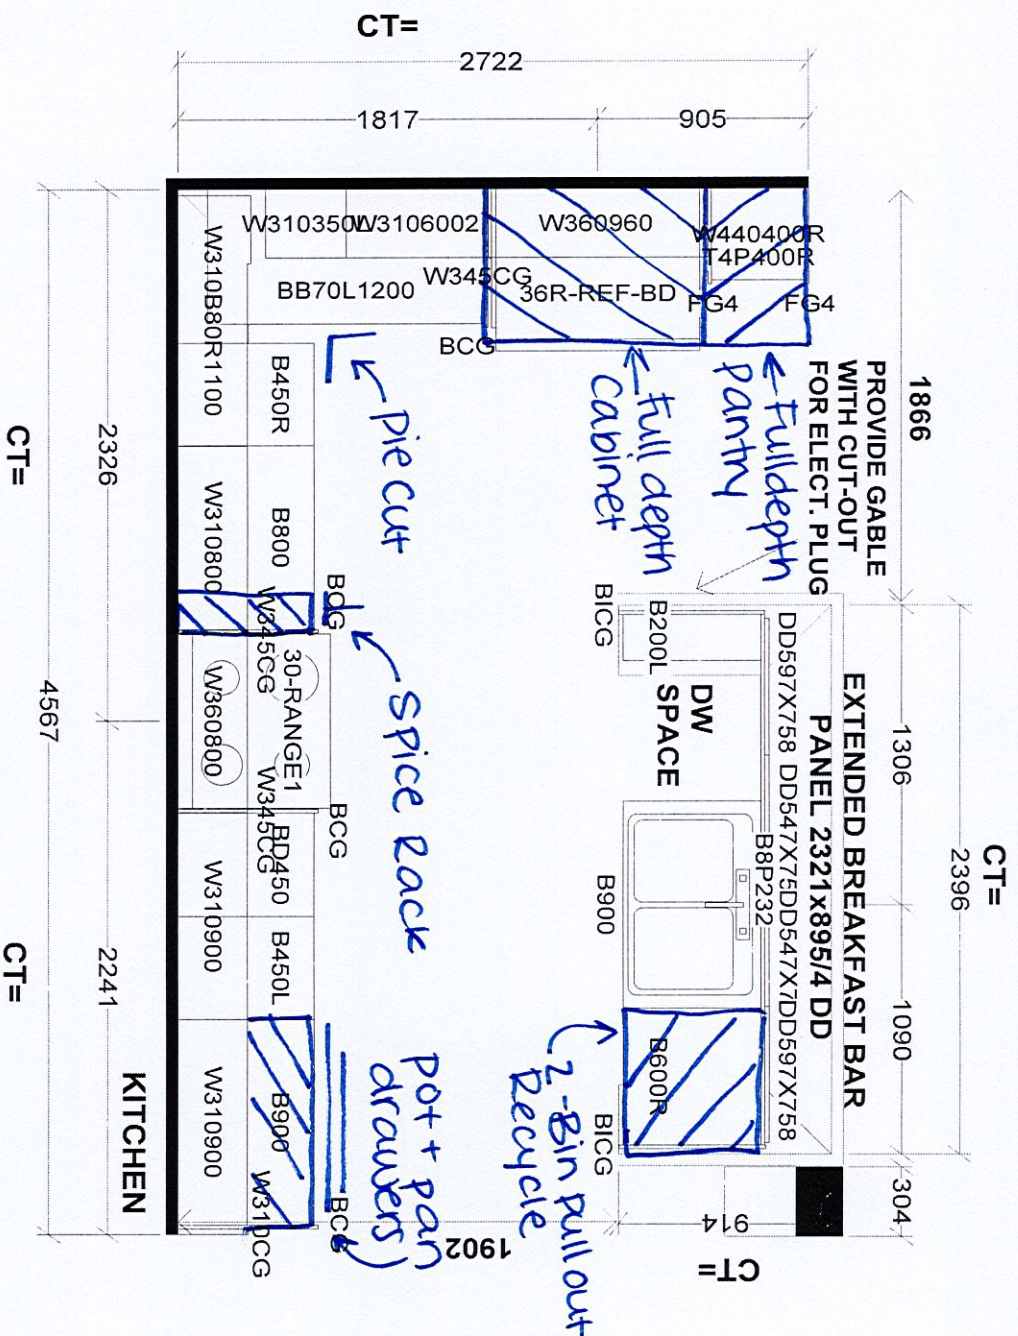 CT=
2722
1817
905
W310350L
W3106002
W360960
W440400R
T4P400R
BB70L1200
W345CG
36R-REF-BD
FG4
FG4
BCG
W310B80R1100
B450R
W310800
B800
BCG
W345CG
30-RANGE1
W360800
W345CG
BCG
BD450
W310900
B450L
W310900
B900
W310CG
BCG
2326
2241
4567
CT=
CT=
KITCHEN
1902
Pie cut
Spice Rack
Pot + pan
drawers)
Full depth
Cabinet
Full depth
pantry
2-Bin pull out
Recycle
1866
PROVIDE GABLE
WITH CUT-OUT
FOR ELECT. PLUG
BICG
B200L
DW
SPACE
B900
B8P232
B600R
BICG
DD597X758
DD547X75
DD547X7
DD597X758
EXTENDED BREAKFAST BAR
PANEL 2321x895/4 DD
1306
1090
2396
CT=
304
914
CT=